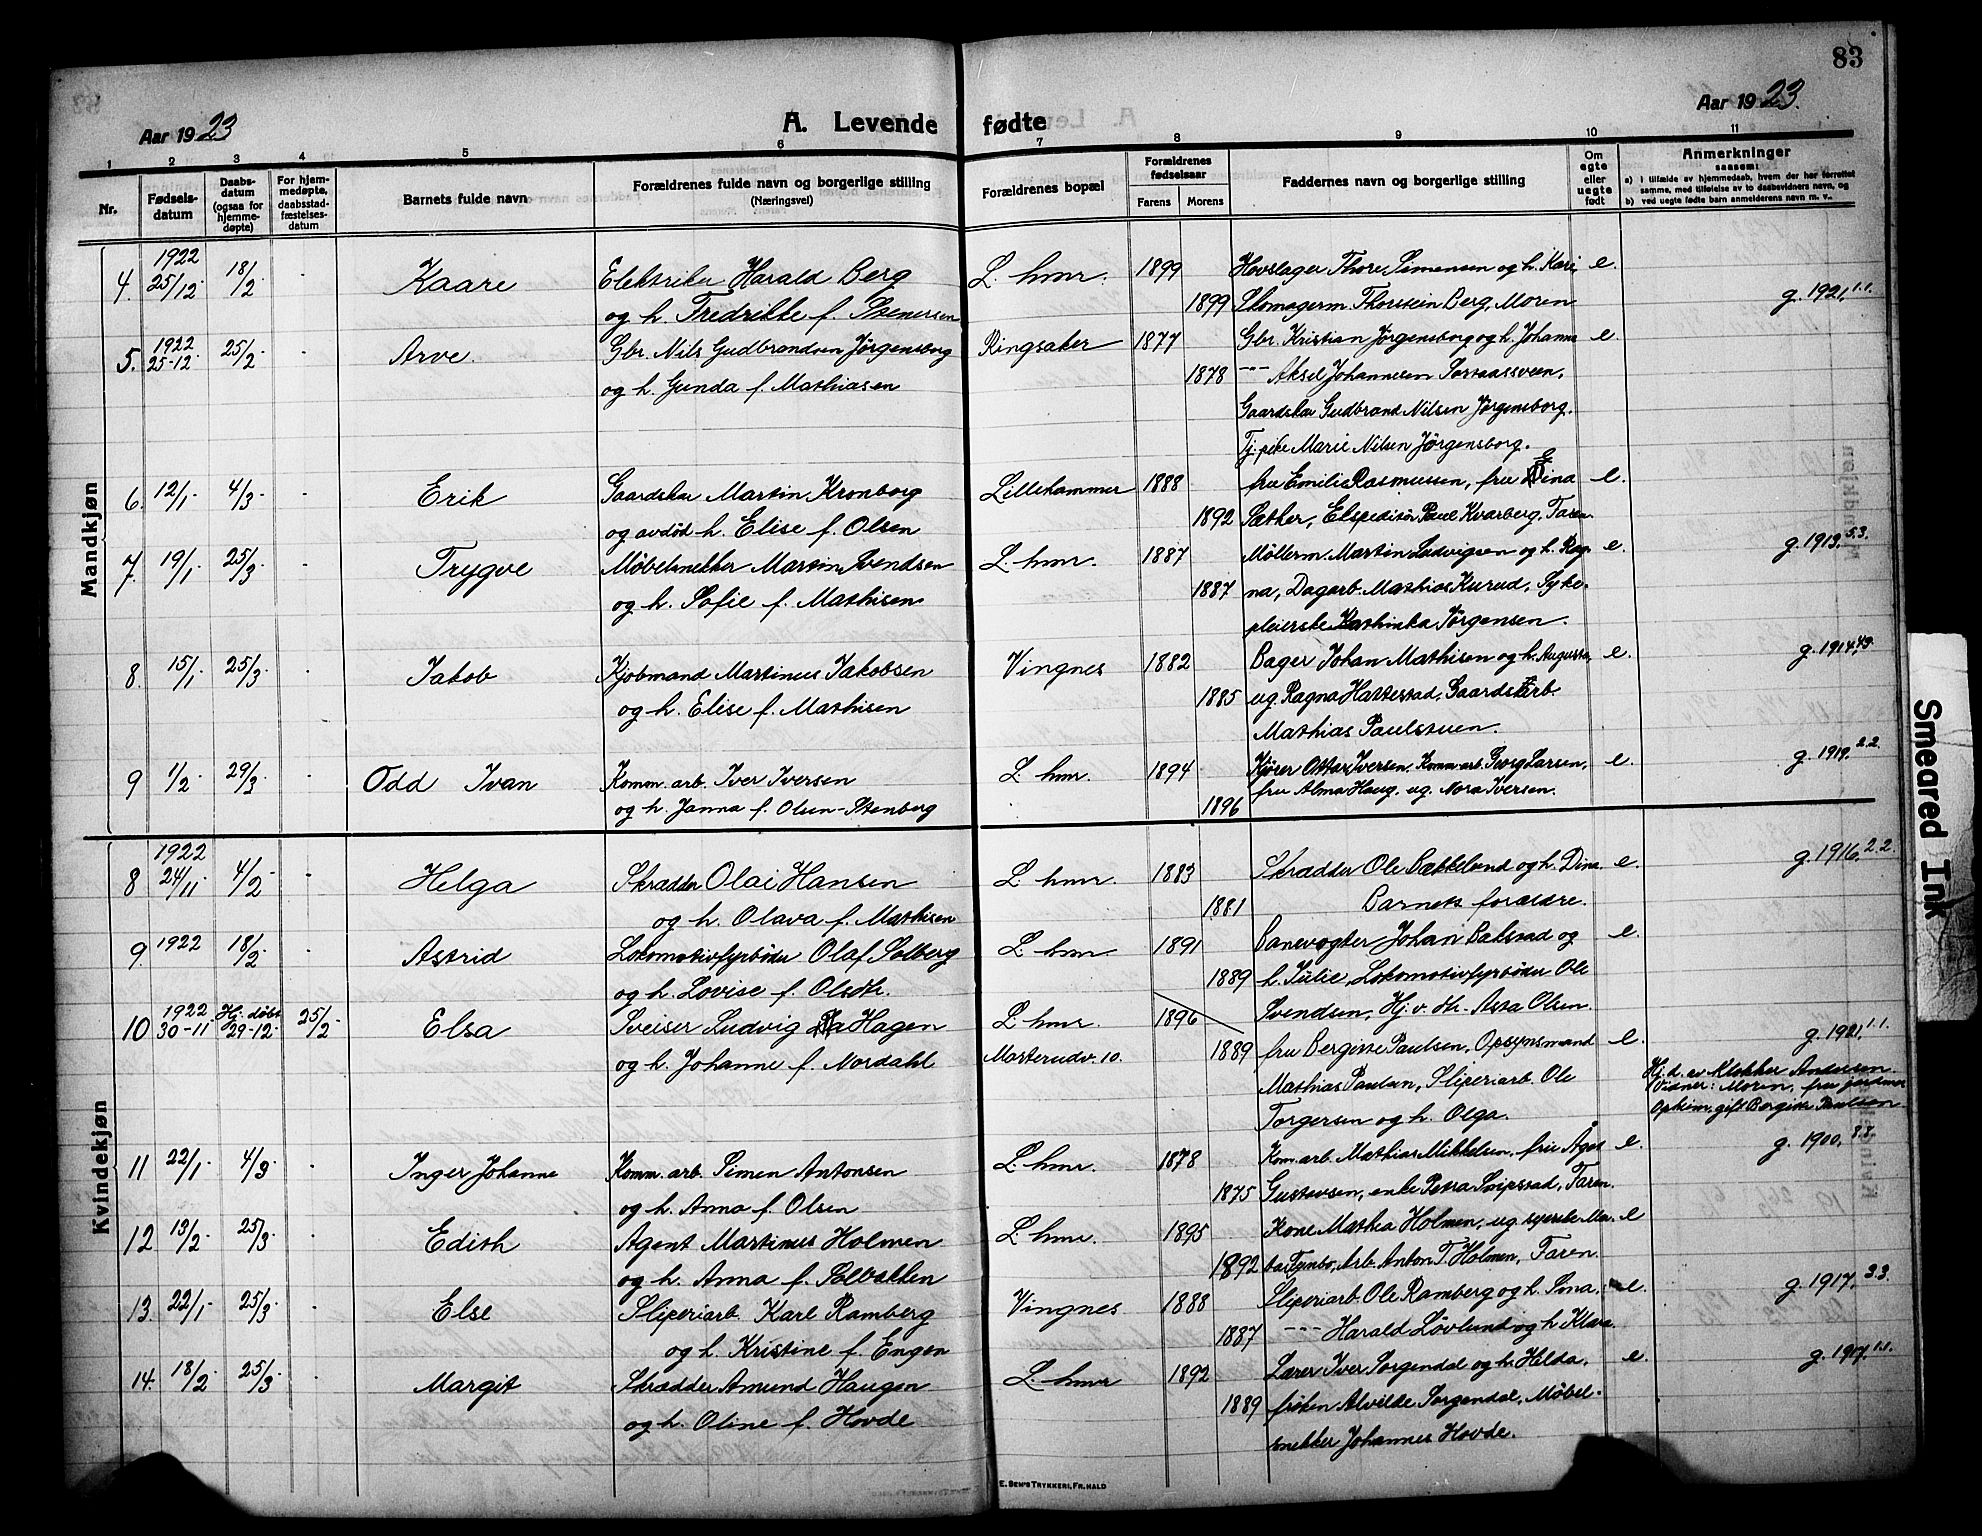 83
Aar 1923
A. Levende fødte
Aar 1923.
1 2 3 4 5 6 7 8 9 10 11
Nr.
Fødsels-
datum
Daabs-
datum
(ogsaa for
hjemme-
døpte)
For hjem-
medøpte,
daabsstad-
fæstelses-
datum
Barnets fulde navn
Forældrenes fulde navn og borgerlige stilling
(Næringsvei)
Forældrenes bopæl
Forældrenes
fødselsaar
Farens Morens
Faddernes navn og borgerlige stilling
Om
egte
eller
uegte
født
Anmerkninger
saasom:
a) i tilfælde av hjemmedaab, hvem der har forrettet
samme, med tilføielse av to daabsvidners navn, og
b) ved uegte fødte barn anmelderens navn m. v.
Mandkjøn
1922
4. 25/12. 18/2 - Kaare Elektriker Harald Berg L. hmr. 1899 Hovslager Thore Simensen og h. Kari, e.
og h. Fredrikke f. Stenersen 1899 Skomagerm. Thorstein Berg, Moren g. 1921, 1.1.
1922
5. 25-12. 25/2 - Arve. Gbr. Nils Gudbrandsen Jörgensborg Ringsaker 1877 Gbr. Kristian Jörgensborg og h. Johanne e.
og h. Gunda f. Mathiasen 1878 -"- Aksel Johannesen
Gaardskar Gudbrand Nilsen Jörgensborg.
Tj. pike Marie Nilsen Jörgensborg.
6. 12/1 4/3 - Erik Gaardskar Martin Kronborg Lillehammer 1888 fru Emilie Rasmussen, fru Dina e.
og avdød h. Elise f. Olsen 1892 Sæther, Ekspeditör Paul Kvarberg, Faren.
7. 19/1 25/3 - Trygve Møbelsnekker Martin Svendsen L. hmr. 1887 Møllerm. Martin Ludvigsen og h. Rag- e. g. 1913, 5.3.
og h. Sofie f. Mathisen 1887 na, Dagarb. Mathias Kurud, Syke-
pleierske Kathinka Jörgensen.
8. 15/1 25/3 - Jakob Kjøbmand Martinus Jakobsen Vingnes 1882 Bager Johan Mathisen og h. Augusta, e. g. 1914, 4.3.
og h. Elise f. Mathisen 1885 ug. Ragna Hattestad, Gaardsarb.
Mathias Paulstuen.
9 1/2 29/3 - Odd Ivan Komm. arb. Iver Iversen L. hmr. 1894 Kjører Ottar Iversen. Komm. arb. Georg Larsen, e. g. 1919, 2.2.
og h. Janna f. Olsen-Stenberg 1896 fru Alma Haug, ug. Nora Iversen.
Kvindekjøn
1922
8 24/11 4/2 - Helga Skrædder Olai Hansen L. hmr. 1883 Skrædder Ole Bækkelund og h. Dina. e. g. 1916, 2.2.
og h. Olava f. Mathisen 1881 Barnets forældre.
9. 1922 18/2 - Astrid Lokomotivfyrbøder Olaf Solberg L. hmr 1891 Banevogter Johan Bakstad og e.
og h. Lovise f. Olsdtr. 1889 h. Julie, Lokomotivfyrbøder Ole
Svendsen, Hj. v. dtr. Asta Olsen.
1922
10 30-11. Hj. døbt 29-12. 25/2 Elsa Sveiser Ludvig Hagen L. hmr. 1896 fru Bergitte Paulsen, Opsynsmand e. g. 1921, 1.1.
og h. Johanne f. Nordahl 10. 1889 Mathias Paulsen, Sliperiarb. Ole
Torgersen og h. Olga.
Hj. d. av Klokker Andersen.
Vidner: Moren, fru jordmor
Opheim, gift Bergitte Paulsen
11 22/1 4/3 - Inger Johanne Komm. arb. Simen Antonsen L. hmr. 1878 Kom. arb. Mathias Mikkelsen, fru Ågot e g. 1900, 8.8.
og h. Anna f. Olsen 1875 Gustavsen, enke Petra Snipstad, Faren.
12 13/2 25/3 - Edith Agent Martinus Holmen L. hmr. 1895 Kone Mathea Holmen, ug. syerske e
og h. Anna f. Solbakken 1892 Arb. Anton T. Holmen, Faren.
13. 22/1 25/3 - Else Sliperiarb. Karl Ramberg Vingnes 1888 Sliperiarb. Ole Ramberg og h. Sina, e. g. 1917, 3.3.
og h. Kristine f. Engen 1887 -"- Harald Løvlund og h. Klara.
14. 18/2 25/3 - Margit Skrædder Amund Haugen L. hmr 1892 Lærer Iver Sørgendal og h. Hilda, e. g. 1917, 1.1.
og h. Oline f. Hovde 1889 frøken Alvilde Sørgendal, Møbel-
snekker Johannes Hovde.
E. SEM'S TRYKKERI, FR.HALD
Smeared Ink